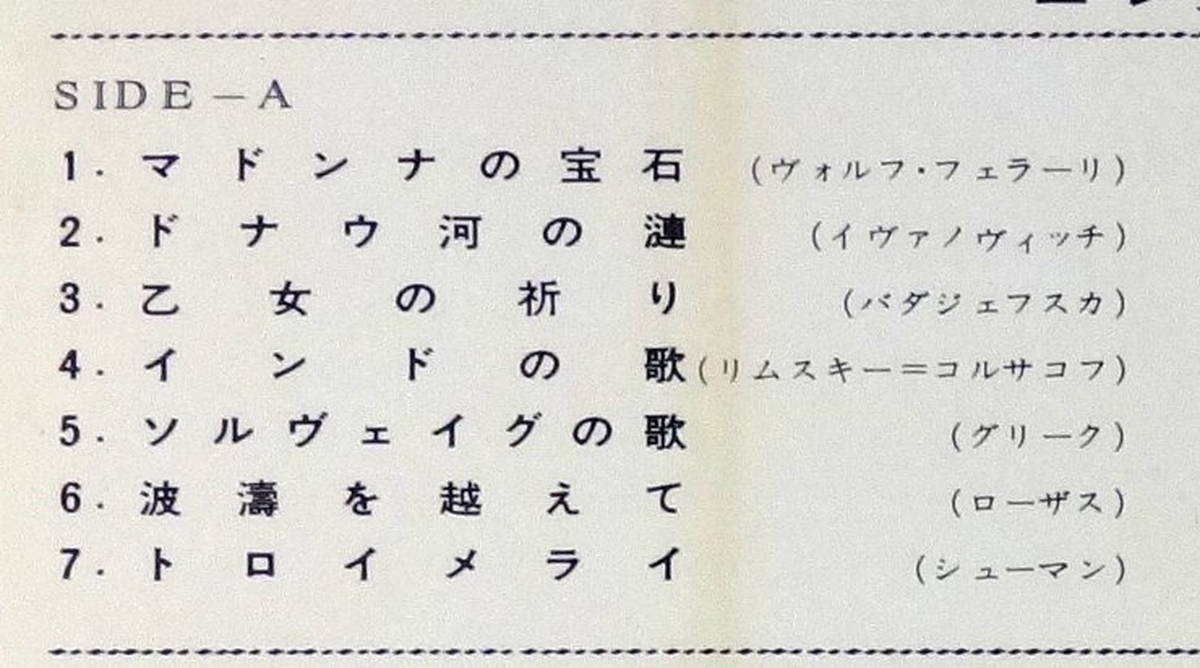 SIDE－A
1. マドンナの宝石 (ヴォルフ・フェラーリ)
2. ドナウ河の漣 (イヴァノヴィッチ)
3. 乙女の祈り (バダジェフスカ)
4. インドの歌 (リムスキー＝コルサコフ)
5. ソルヴェイグの歌 (グリーク)
6. 波濤を越えて (ローザス)
7. トロイメライ (シューマン)